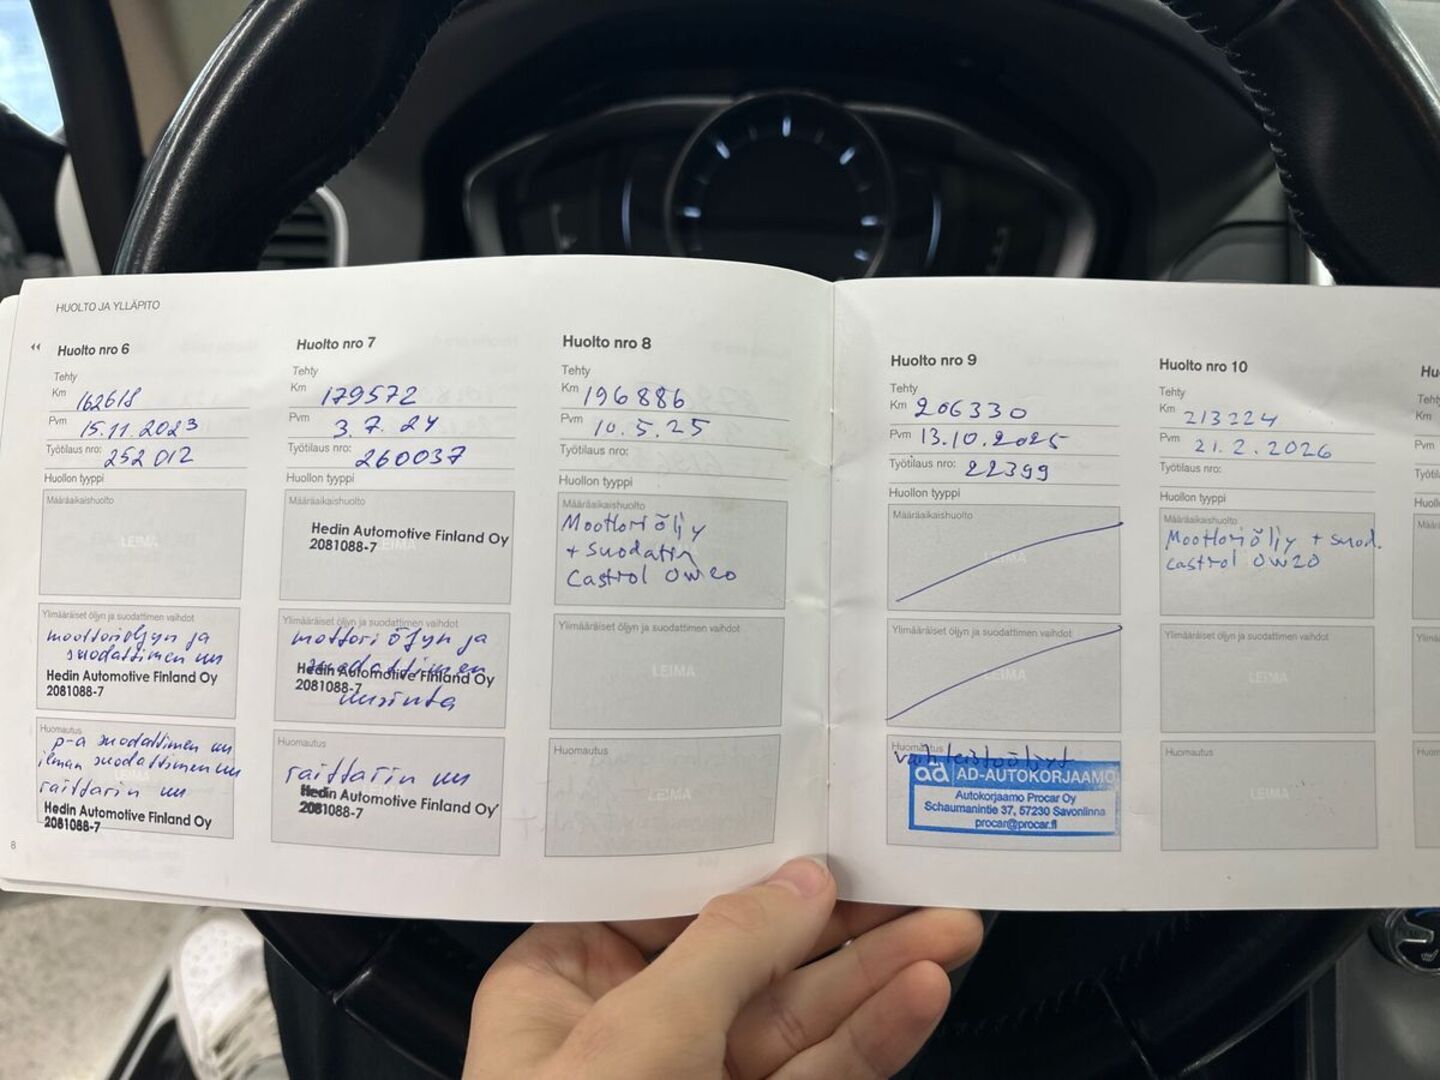 HUOLTO JA YLLÄPITO
Huolto nro 6
Tehty
Km 162618
Pvm 15.11.2023
Työtilaus nro: 252012
Huollon tyyppi
Määräaikaishuolto
LEIMA
Ylimääräiset öljyn ja suodattimen vaihdot
moottoriöljyn ja
suodattimen uu
Hedin Automotive Finland Oy
2081088-7
Huomautus
p-a suodattimen uu
ilman suodattimen uu
raittarin uu
Hedin Automotive Finland Oy
2081088-7
8
Huolto nro 7
Tehty
Km 179572
Pvm 3.7.24
Työtilaus nro: 260037
Huollon tyyppi
Määräaikaishuolto
Hedin Automotive Finland Oy
2081088-7
Ylimääräiset öljyn ja suodattimen vaihdot
mottori öljyn ja
suodattimen
Hedin Automotive Finland Oy
2081088-7
uusinta
Huomautus
raittarin uu
Hedin Automotive Finland Oy
2081088-7
Huolto nro 8
Tehty
Km 196886
Pvm 10.5.25
Työtilaus nro:
Huollon tyyppi
Määräaikaishuolto
Moottoriöljy
+ suodatin
Castrol 0w20
Ylimääräiset öljyn ja suodattimen vaihdot
LEIMA
Huomautus
LEIMA
Huolto nro 9
Tehty
Km 206330
Pvm 13.10.2025
Työtilaus nro: 22399
Huollon tyyppi
Määräaikaishuolto
LEIMA
Ylimääräiset öljyn ja suodattimen vaihdot
LEIMA
Huomautus
vaihteistoöljyt
ad AD-AUTOKORJAAMO
Autokorjaamo Procar Oy
Schaumanintie 37, 57230 Savonlinna
procar@procar.fi
Huolto nro 10
Tehty
Km 213224
Pvm 21.2.2026
Työtilaus nro:
Huollon tyyppi
Määräaikaishuolto
Moottoriöljy + suod.
Castrol 0w20
Ylimääräiset öljyn ja suodattimen vaihdot
LEIMA
Huomautus
LEIMA
Hu
Tehty
Km
Pvm